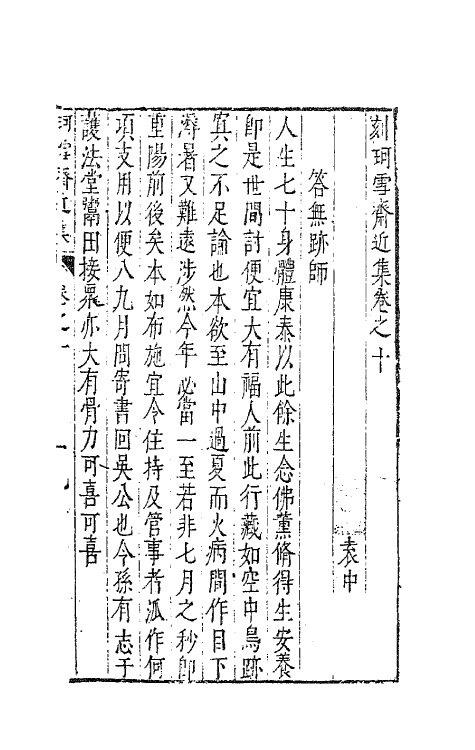 刻珂雪齋近集卷之十
袁中
答無跡師
人生七十身體康泰以此餘生念佛薰脩得生安養
即是世間討便宜大有福人前此行藏如空中鳥跡
寘之不足論也本欲至山中過夏而火病間作目下
溽暑又難遠涉然今年必當一至若非七月之秒即
重陽前後矣本如布施宜令住持及管事者派作何
項支用以便八九月間寄書回吳公也今孫有志于
護法堂鬻田接眾亦大有骨力可喜可喜
珂雪齋近集 卷之十